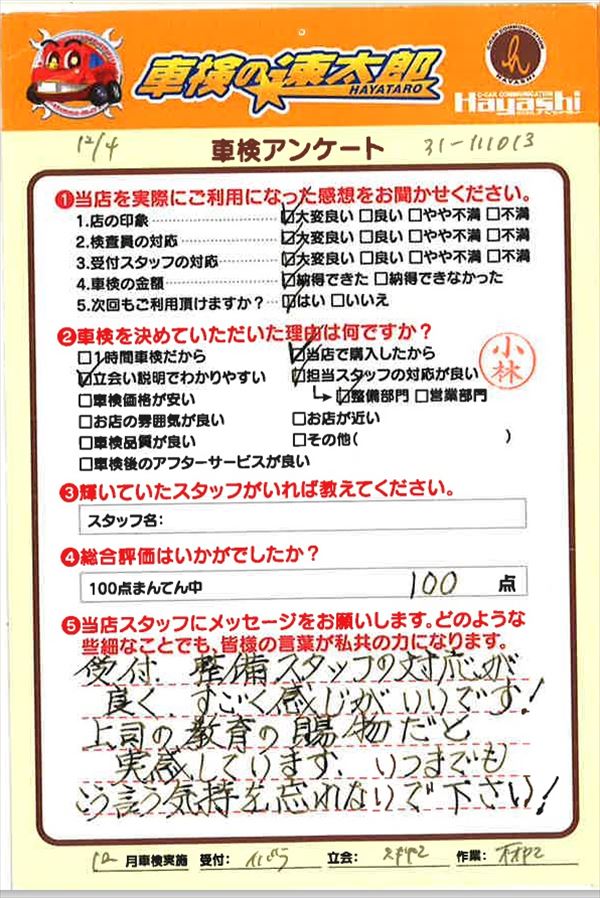 車検の速太郎
HAYATARO
CAR COMMUNICATION
HAYASHI
C-CAR COMMUNICATION
Hayashi
12/4 車検アンケート 31-111013
❶当店を実際にご利用になった感想をお聞かせください。
1.店の印象 ☑大変良い □良い □やや不満 □不満
2.検査員の対応 ☑大変良い □良い □やや不満 □不満
3.受付スタッフの対応 ☑大変良い □良い □やや不満 □不満
4.車検の金額 ☑納得できた □納得できなかった
5.次回もご利用頂けますか? ☑はい □いいえ
❷車検を決めていただいた理由は何ですか?
□1時間車検だから ☑当店で購入したから
☑立会い説明でわかりやすい ☑担当スタッフの対応が良い
小林
□車検価格が安い ☑整備部門 □営業部門
□お店の雰囲気が良い □お店が近い
□車検品質が良い □その他( )
□車検後のアフターサービスが良い
❸輝いていたスタッフがいれば教えてください。
スタッフ名:
❹総合評価はいかがでしたか?
100点まんてん中 100 点
❺当店スタッフにメッセージをお願いします。どのような
些細なことでも、皆様の言葉が私共の力になります。
受付、整備スタッフの対応が
良く、すごく感じがいいです!
上司の教育の賜物だと
実感しています、いつまでも
こう言う気持を忘れないで下さい!
12 月車検実施 受付: 立会: 作業: